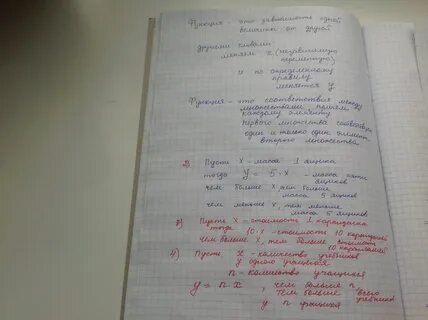 Функция - это зависимость одной
величины от другой
Другими словами:
меняем x (независимую
переменную)
и по определенному
правилу
меняется y
Функция - это соответствие между
множествами, причем
каждому элементу
первого множества соответствует
один и только один элемент
второго множества
2) Пусть x - масса 1 ящика
тогда y = 5·x - масса пяти
ящиков
чем больше x, тем больше
масса 5 ящиков
чем меньше x, тем меньше
масса 5 ящиков
3) Пусть x - стоимость 1 карандаша
тогда 10·x - стоимость 10 карандашей
чем больше x, тем больше стоимость
10 карандашей
4) Пусть x - количество учебников
у одного учащегося
n - количество учащихся
y = n·x, чем больше n,
тем больше всего
учебников
у n учащихся